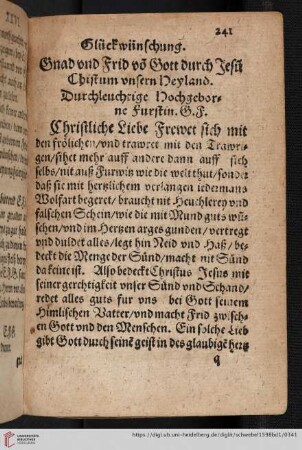 241
Glückwünschung.
Gnad vnd Frid võ Gott durch Jesũ
Chistum vnsern Heyland.
Durchleuchtige Hochgebor-
ne Fürstin. G. F.
Christliche Liebe Frewet sich mit
den frölichen / vnd trawret mit den Trawri-
gen / sihet mehr auff andere dann auff sich
selbs / nit auß Furwitz wie die welt thut / sonder
daß sie mit hertzlichem verlangen iedermans
Wolfart begeret / braucht nit Heuchlerey vnd
falschen Schein / wie die mit Mund guts wün-
schen / vnd im Hertzen arges gunden / vertregt
vnd duldet alles / legt hin Neid vnd Haß / be-
deckt die Menge der Sünd / macht nit Sünd
da keine ist. Also bedeckt Christus Jesus mit
seiner gerechtigkeit vnser Sünd vnd Schand /
redet alles guts fur vns bey Gott seinem
Himlischen Vatter / vnd macht Frid zwisch-
en Gott vnd den Menschen. Ein solche Lieb
gibt Gott durch seinẽ geist in des glaubigẽ hertz
q
XXVI.
https://digi.ub.uni-heidelberg.de/diglit/schwebel1598bd1/0341